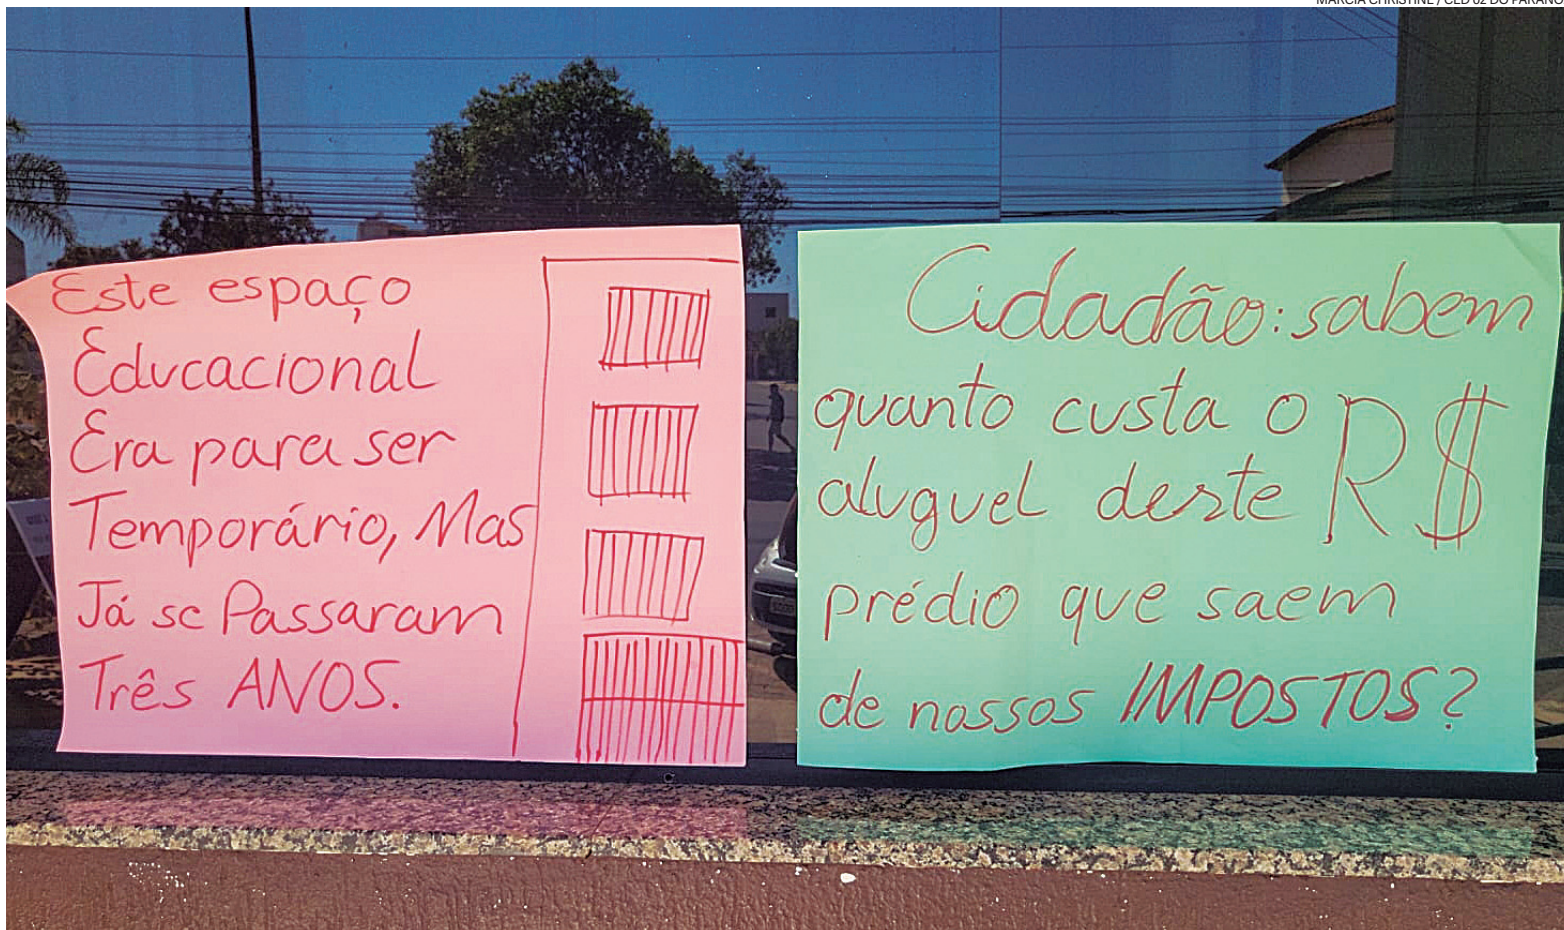 Este espaço
Educacional
Era para ser
Temporário, Mas
Já se Passaram
Três ANOS.
Cidadão: sabem
quanto custa o
aluguel deste R$
prédio que saem
de nossos IMPOSTOS?